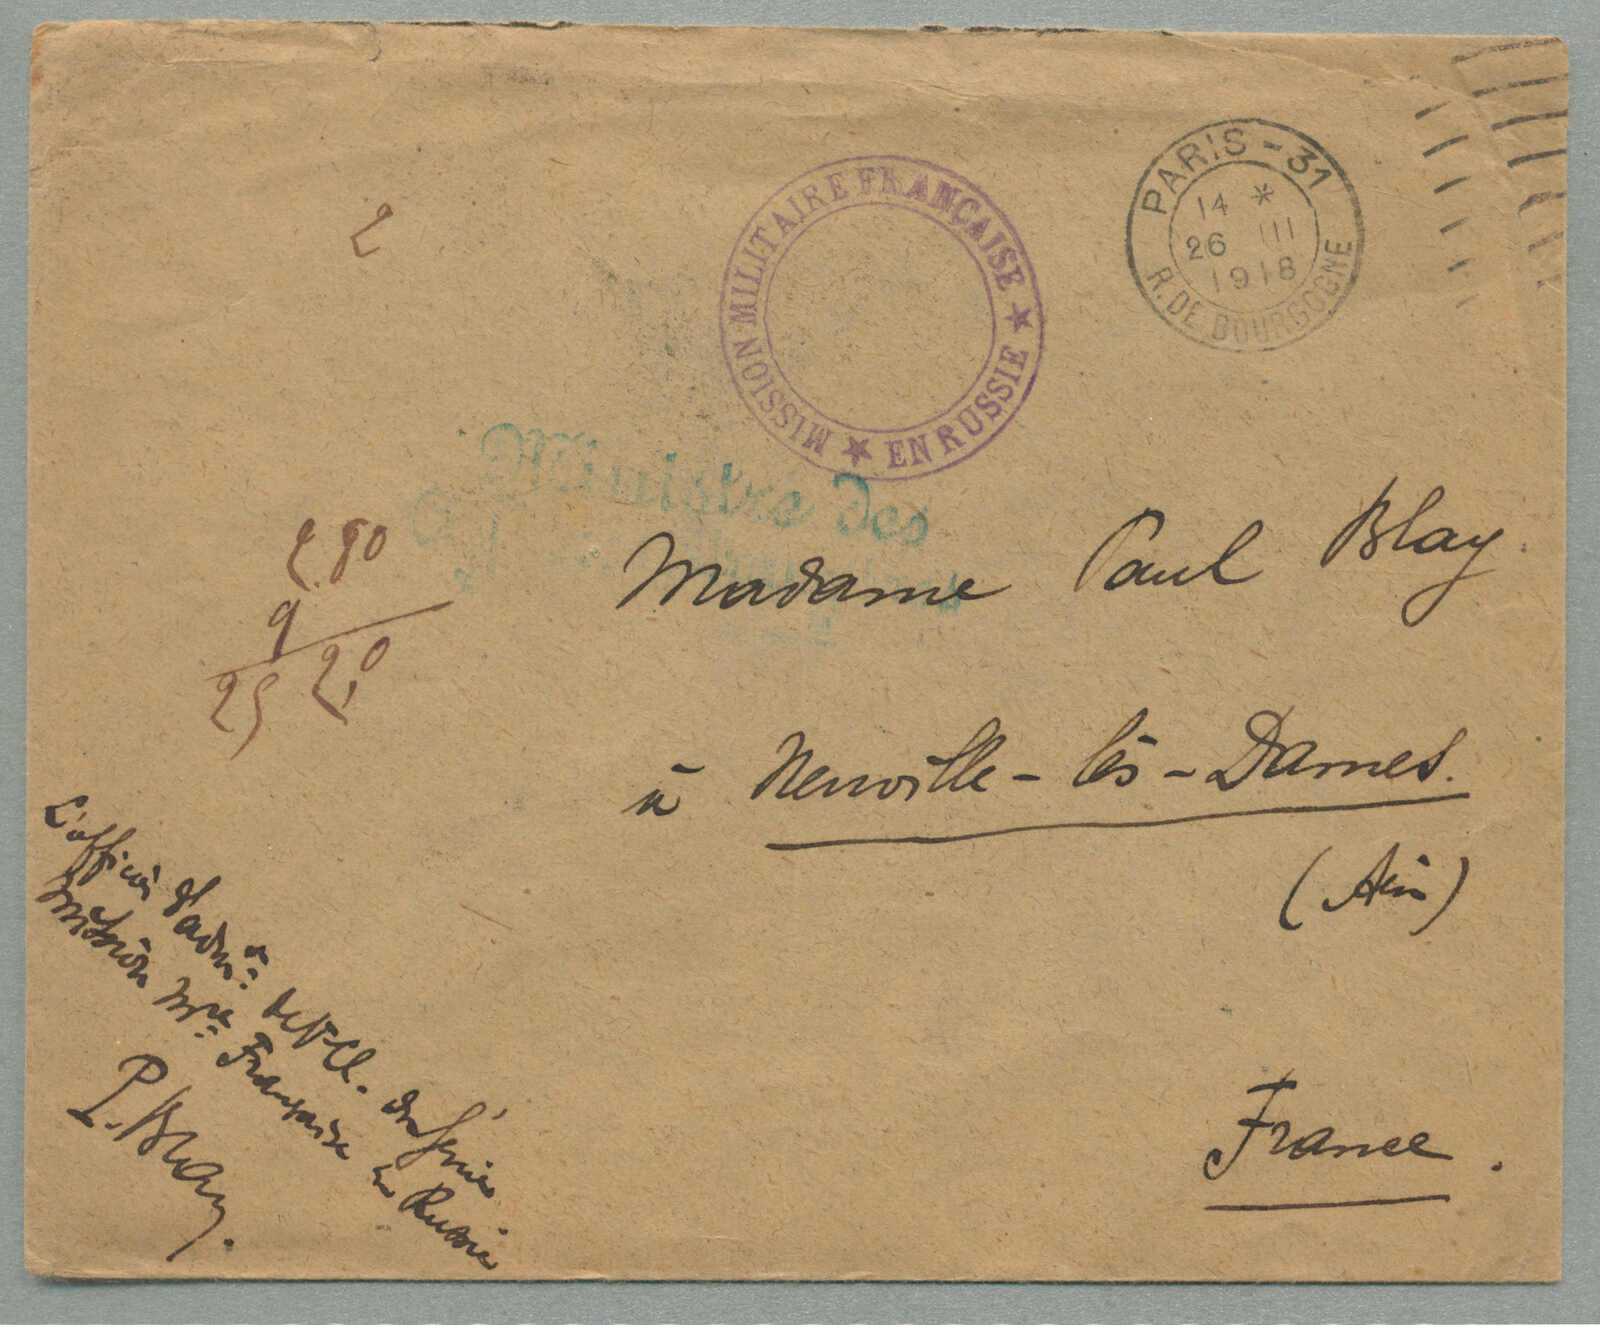 PARIS - 31
14 *
26 III
1918
R. DE BOURGOGNE
MISSION MILITAIRE FRANÇAISE ★
EN RUSSIE ★
2
Ministre des
Madame Paul Blay
à Neuville-lès-Dames.
(Ain)
France.
2.80
9
25 20
L'officier d'adm^on de 1^e Cl. du Génie
Mission M^re Française en Russie
P. Blay.